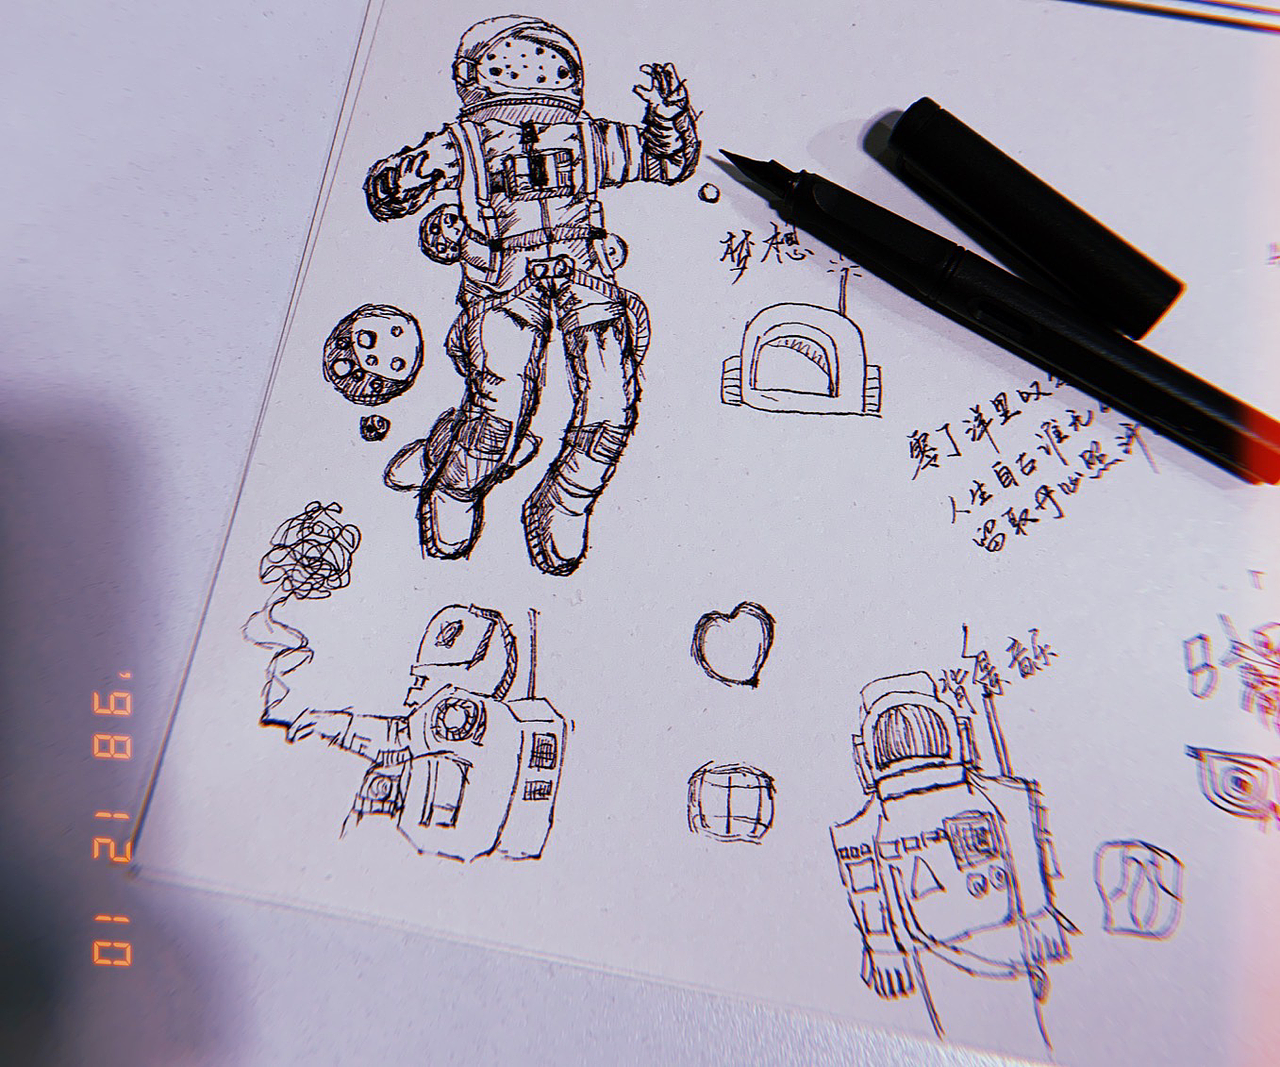 '98 12 10
梦想
零丁洋里叹
人生自古谁无
留取丹心照汗
背景音乐